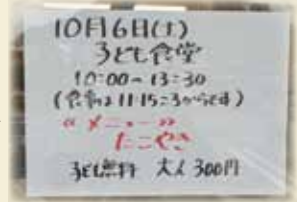 10月6日(土)
子ども食堂
10:00~13:30
(食事は11:15ごろからです)
"メニュー"
たこやき
子ども無料 大人300円